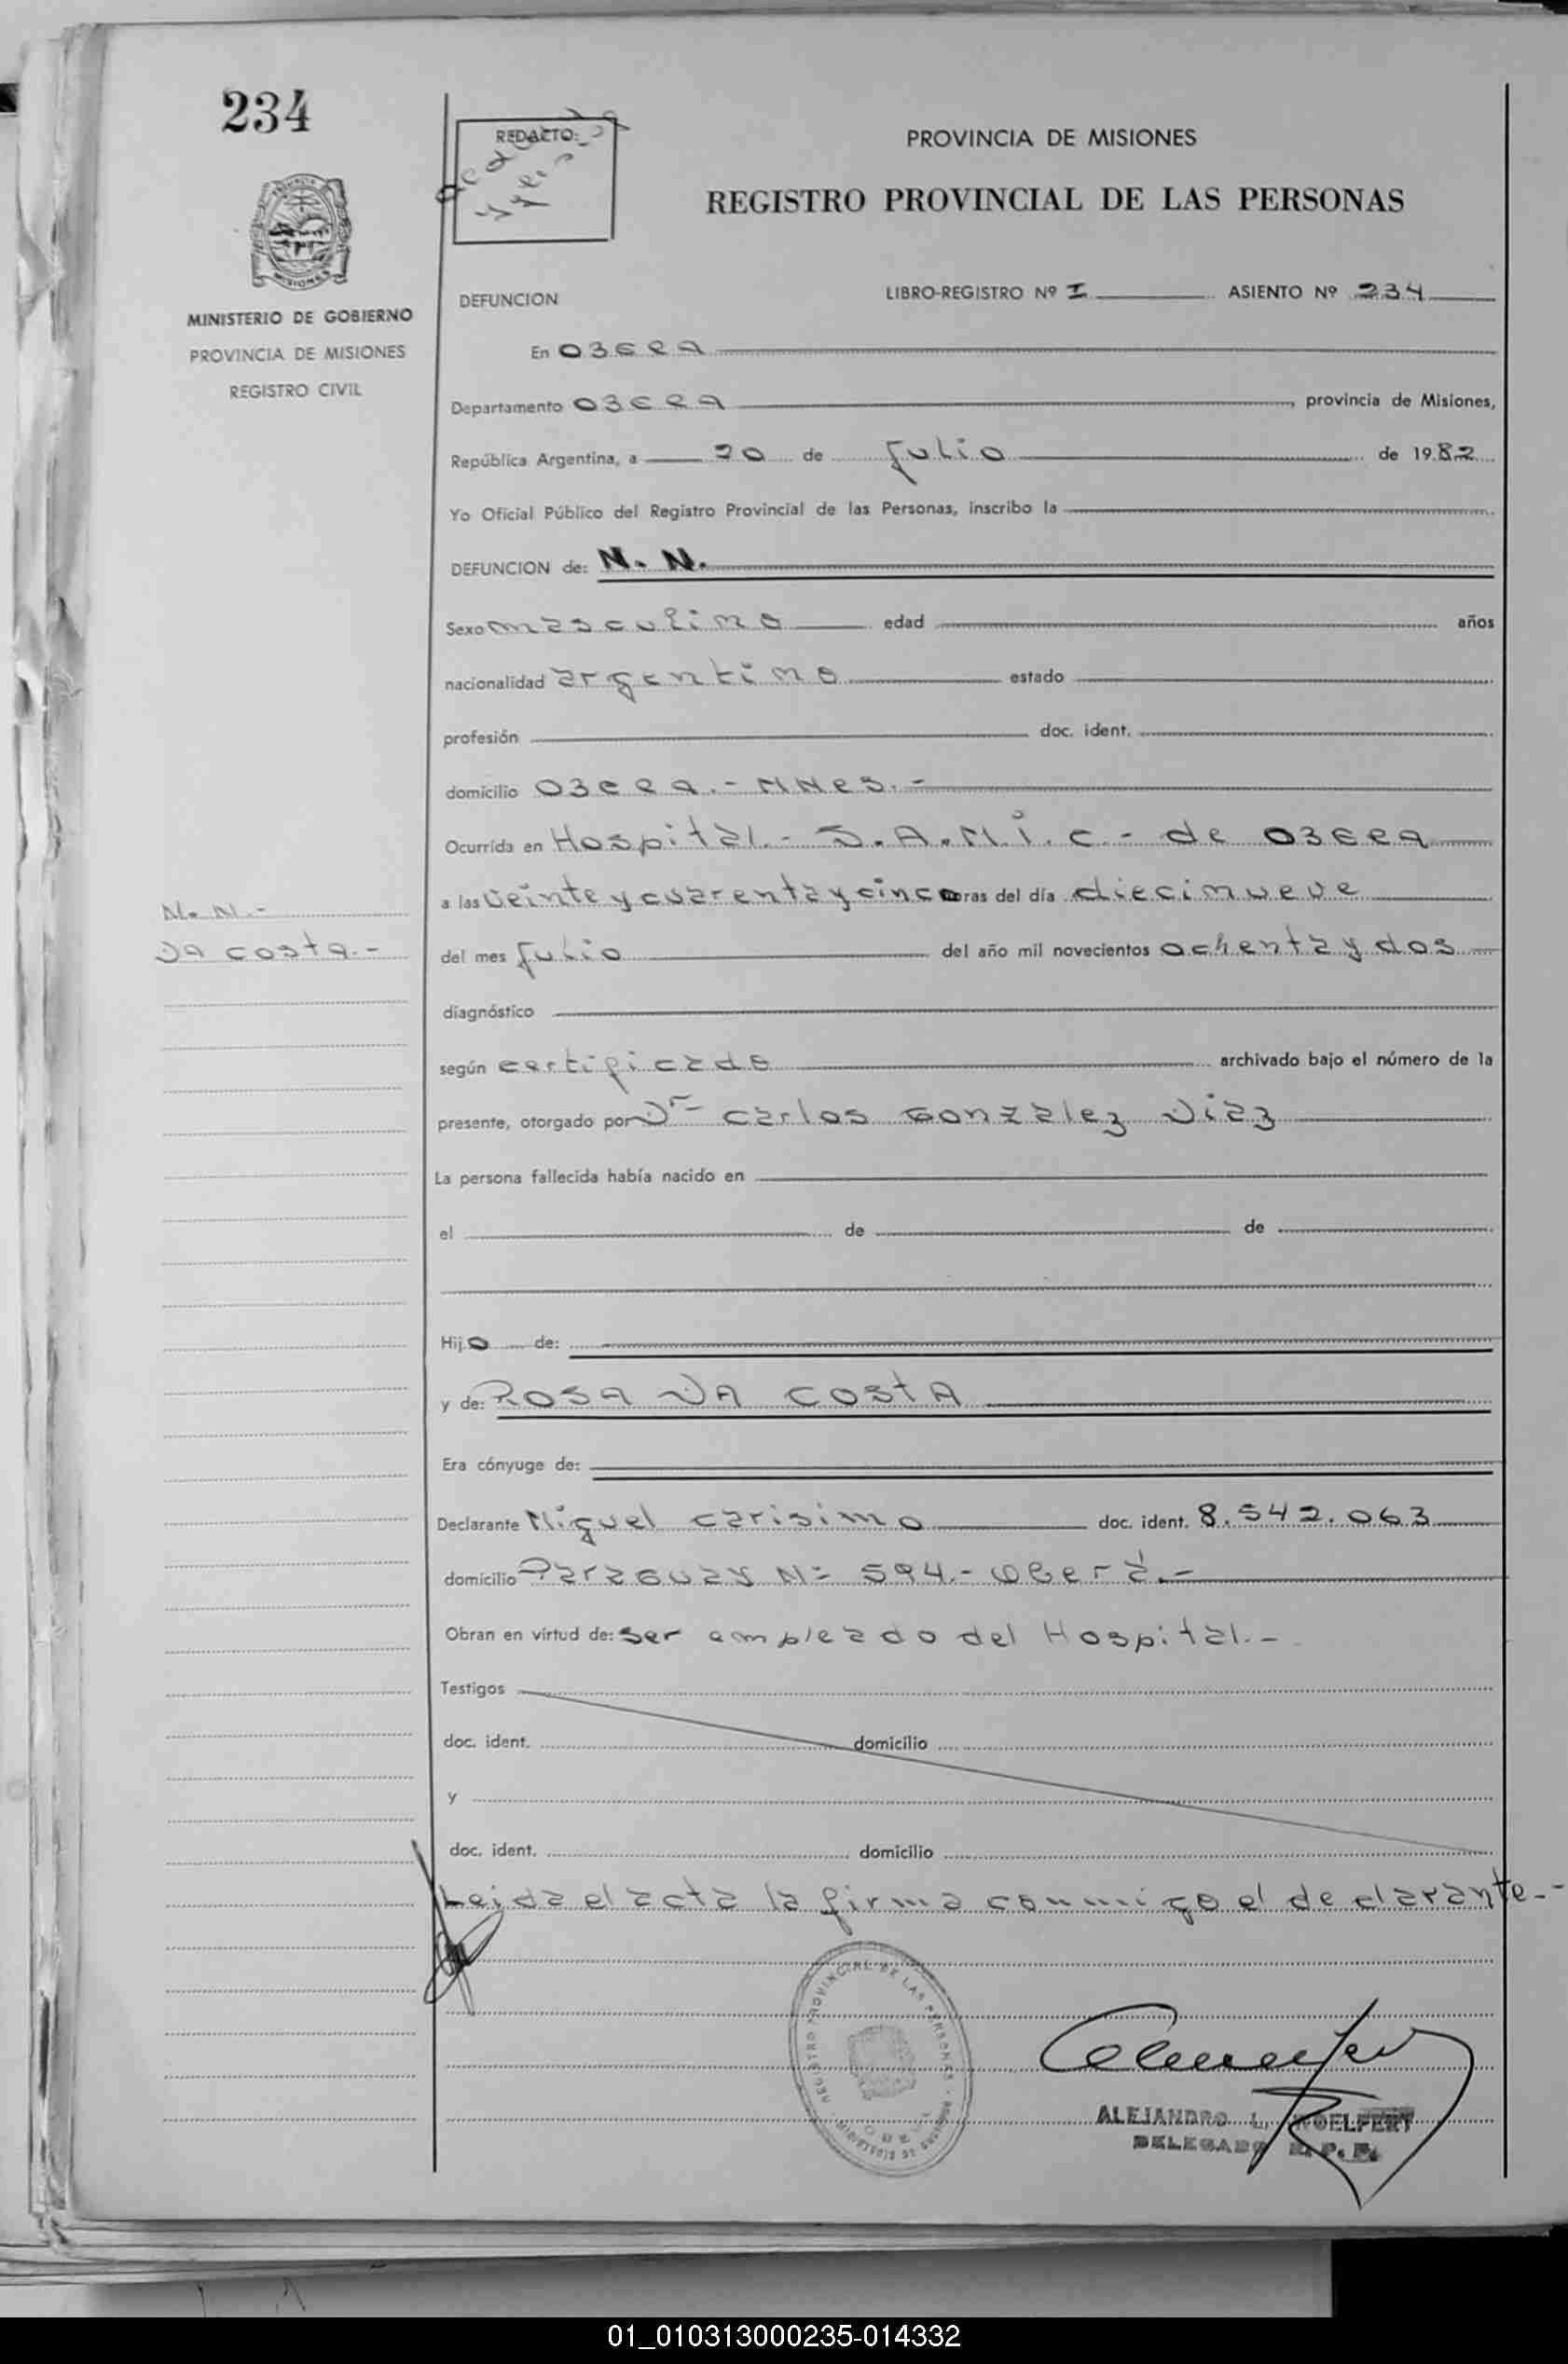 234
REDACTO:
PROVINCIA DE MISIONES
REGISTRO PROVINCIAL DE LAS PERSONAS
MINISTERIO DE GOBIERNO
PROVINCIA DE MISIONES
REGISTRO CIVIL
DEFUNCION
LIBRO-REGISTRO Nº I ASIENTO Nº 234
En OBERA
Departamento OBERA, provincia de Misiones,
República Argentina, a 20 de Julio de 1982
Yo Oficial Público del Registro Provincial de las Personas, inscribo la
DEFUNCION de: N. N.
Sexo masculino edad años
nacionalidad argentino estado
profesión doc. ident.
domicilio OBERA.- MNes.-
Ocurrida en Hospital.- S.A.M.i.c.- de OBERA
a las veinte y cuarenta y cinco oras del día diecinueve
N. N.-
DA costa.-
del mes Julio del año mil novecientos ochenta y dos
diagnóstico
según certificado archivado bajo el número de la
presente, otorgado por Dr- Carlos Gonzalez Diaz
La persona fallecida había nacido en
el de de
Hijo de:
y de: ROSA DA COSTA
Era cónyuge de:
Declarante Miguel carisimo doc. ident. 8.542.063
domicilio Paraguay N= 594.- Oberá.-
Obran en virtud de: ser empleado del Hospital.-
Testigos
doc. ident. domicilio
y
doc. ident. domicilio
Leida el acta la firma conmigo el declarante.-
REGISTRO PROVINCIAL DE LAS PERSONAS
MINISTERIO DE GOBIERNO
ALEJANDRO L. WOELFERT
DELEGADO R. P. P.
01_010313000235-014332